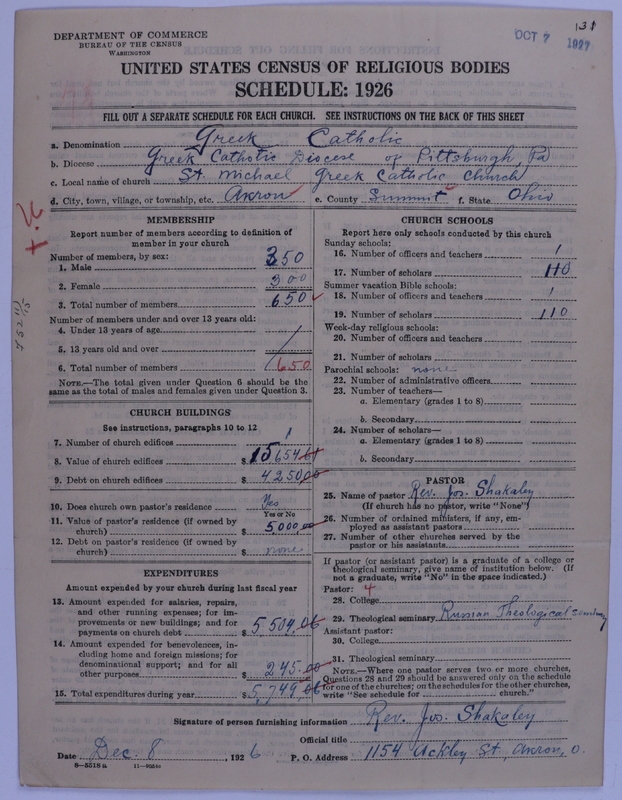 131
DEPARTMENT OF COMMERCE
BUREAU OF THE CENSUS
WASHINGTON
OCT 7 1927
UNITED STATES CENSUS OF RELIGIOUS BODIES
SCHEDULE: 1926
FILL OUT A SEPARATE SCHEDULE FOR EACH CHURCH. SEE INSTRUCTIONS ON THE BACK OF THIS SHEET
a. Denomination Greek Catholic
b. Diocese Greek Catholic Diocese of Pittsburgh, Pa
c. Local name of church St. Michael Greek Catholic Church
d. City, town, village, or township, etc. Akron e. County Summit f. State Ohio
MEMBERSHIP
Report number of members according to definition of
member in your church
Number of members, by sex:
1. Male 350
2. Female 300
3. Total number of members 650
Number of members under and over 13 years old:
4. Under 13 years of age
5. 13 years old and over
6. Total number of members 650
NOTE.—The total given under Question 6 should be the
same as the total of males and females given under Question 3.
CHURCH BUILDINGS
See instructions, paragraphs 10 to 12
7. Number of church edifices 1
8. Value of church edifices $ 15654.61
9. Debt on church edifices $ 4250.00
10. Does church own pastor's residence Yes
Yes or No
11. Value of pastor's residence (if owned by
church) $ 5,000.00
12. Debt on pastor's residence (if owned by
church) $ none
EXPENDITURES
Amount expended by your church during last fiscal year
13. Amount expended for salaries, repairs,
and other running expenses; for im-
provements or new buildings; and for
payments on church debt $ 5,504.06
14. Amount expended for benevolences, in-
cluding home and foreign missions; for
denominational support; and for all
other purposes $ 245.00
15. Total expenditures during year $ 5,749.06
CHURCH SCHOOLS
Report here only schools conducted by this church
Sunday schools:
16. Number of officers and teachers 1
17. Number of scholars 110
Summer vacation Bible schools:
18. Number of officers and teachers 1
19. Number of scholars 110
Week-day religious schools:
20. Number of officers and teachers
21. Number of scholars
Parochial schools: none
22. Number of administrative officers
23. Number of teachers—
a. Elementary (grades 1 to 8)
b. Secondary
24. Number of scholars—
a. Elementary (grades 1 to 8)
b. Secondary
PASTOR
25. Name of pastor Rev. Jos. Shakaley
(If church has no pastor, write "None")
26. Number of ordained ministers, if any, em-
ployed as assistant pastors
27. Number of other churches served by the
pastor or his assistants
If pastor (or assistant pastor) is a graduate of a college or
theological seminary, give name of institution below. (If
not a graduate, write "No" in the space indicated.)
Pastor: 4
28. College
29. Theological seminary Russian Theological Seminary
Assistant pastor:
30. College
31. Theological seminary
NOTE.—Where one pastor serves two or more churches,
Questions 28 and 29 should be answered only on the schedule
for one of the churches; on the schedules for the other churches,
write "See schedule for church."
Signature of person furnishing information Rev. Jos. Shakaley
Official title
Date Dec. 8, 1926 P. O. Address 1154 Ackley St, Akron, O.
8—5518 a 11—9031b